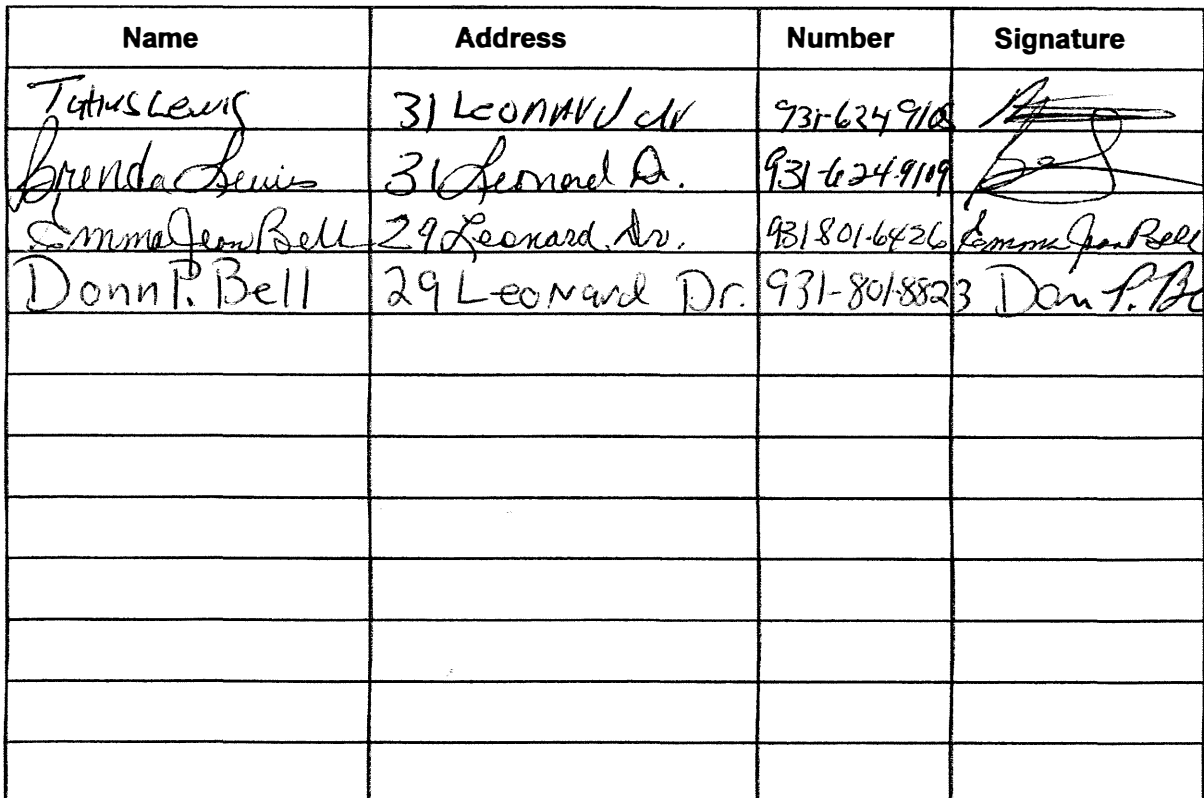 Name Address Number Signature
Lewis 31 Leonard dr 931-624 9108
Brenda Lewis 31 Leonard Dr. 931-624-9109
Emma Jean Bell 29 Leonard Dr. 931 801-6426 Emma Jean Bell
Donn P. Bell 29 Leonard Dr. 931-801-8823 Don P. Be